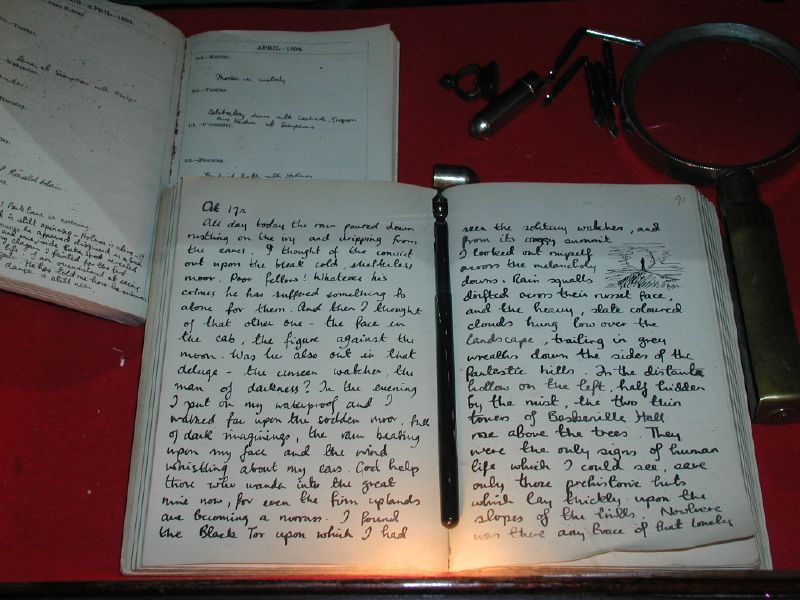 APRIL—1894.
Moran in custody
Celebratory dinner with Lestrade, Gregson
and Hudson at Simpsons
Oct 17th.
All day today the rain poured down
rustling on the ivy and dripping from
the eaves. I thought of the convict
out upon the bleak cold shelterless
moor. Poor fellow! Whatever his
crimes he has suffered something to
atone for them. And then I thought
of that other one - the face in
the cab, the figure against the
moon. Was he also out in that
deluge - the unseen watcher, the
man of darkness? In the evening
I put on my waterproof and I
walked far upon the sodden moor, full
of dark imaginings, the rain beating
upon my face and the wind
whistling about my ears. God help
those who wander into the great
mire now, for even the firm uplands
are becoming a morass. I found
the Black Tor upon which I had
91
seen the solitary watcher, and
from its craggy summit
I looked out myself
across the melancholy
downs. Rain squalls
drifted across their russet face,
and the heavy, slate coloured
clouds hung low over the
landscape, trailing in grey
wreaths down the sides of the
fantastic hills. In the distant
hollow on the left, half hidden
by the mist, the two thin
towers of Baskerville Hall
rose above the trees. They
were the only signs of human
life which I could see, save
only those prehistoric huts
which lay thickly upon the
slopes of the hills. Nowhere
was there any trace of that lonely